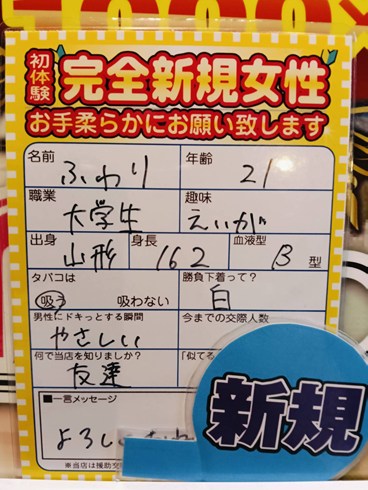 初体験
完全新規女性
お手柔らかにお願い致します
名前 ふわり 年齢 21
職業 大学生 趣味 えいが
出身 山形 身長 162 血液型 B 型
タバコは 吸う 吸わない 勝負下着って? 白
男性にドキっとする瞬間 やさしい 今までの交際人数
何で当店を知りましたか? 友達 「似てる
■一言メッセージ
よろし
※当店は援助交
新規